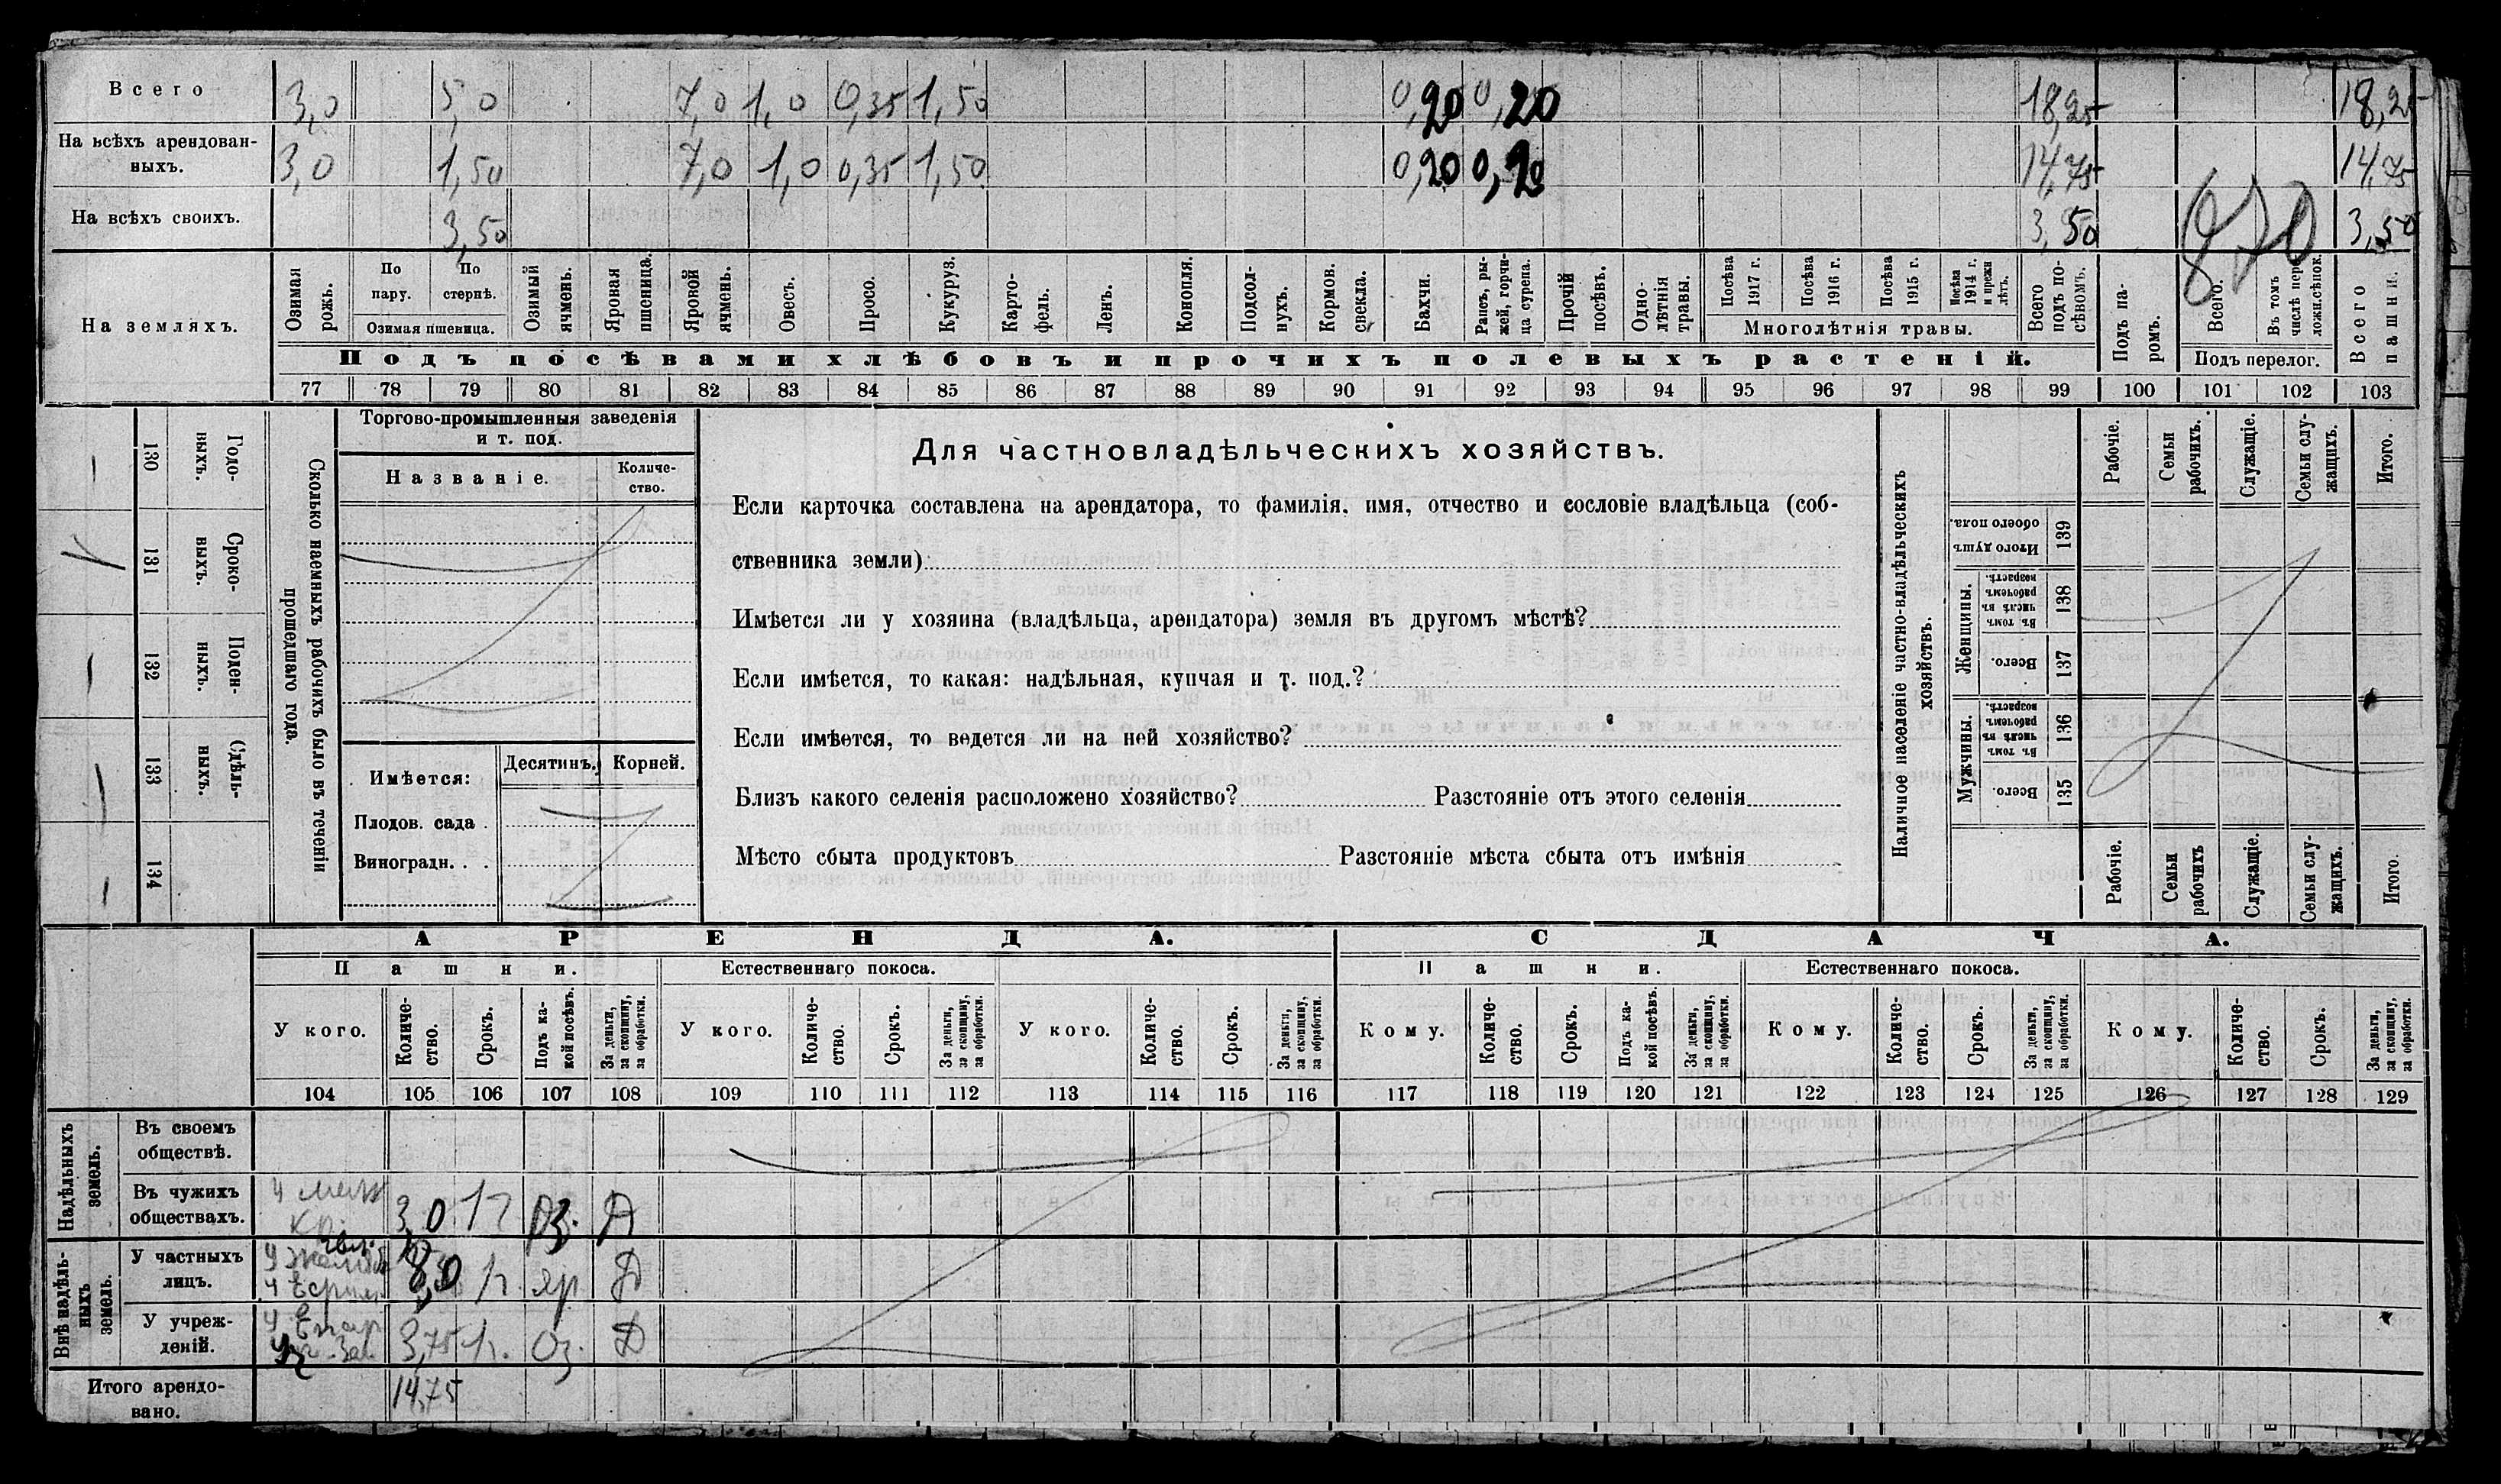 Всего 3,0 5,0 7,0 1,0 0,35 1,50 0,20 0,20 18,25 18,25
На всѣхъ арендован-
ныхъ. 3,0 1,50 7,0 1,0 0,35 1,50 0,20 0,20 14,75 14,75
На всѣхъ своихъ. 3,50 3,50 3,50
870
На земляхъ.
Озимая рожь.
По пару.
По стернѣ.
Озимая пшеница.
Озимый ячмень.
Яровая пшеница.
Яровой ячмень.
Овесъ.
Просо.
Кукуруз.
Карто-
фель.
Ленъ.
Конопля.
Подсол-
нухъ.
Кормов. свекла.
Бахчи.
Рапсъ, ры-
жей, горчи-
ца сурепа.
Прочій посѣвъ.
Одно-
лѣтнія травы.
Посѣва 1917 г.
Посѣва 1916 г.
Посѣва 1915 г.
Посѣва 1914 г. и прежн лѣтъ.
Многолѣтнія травы.
Всего подъ по-
сѣвомъ.
Подъ па-
ромъ.
Всего.
Въ томъ числѣ пере
лож.сѣнок.
Подъ перелог.
Всего пашни.
Подъ посѣвами хлѣбовъ и прочихъ полевыхъ растеній.
77 78 79 80 81 82 83 84 85 86 87 88 89 90 91 92 93 94 95 96 97 98 99 100 101 102 103
Сколько наемныхъ рабочихъ было въ теченіи
прошедшаго года.
Годо-
выхъ.
130
Сроко-
выхъ.
131
Поден-
ныхъ.
132
Сдѣль-
ныхъ.
133
134
Торгово-промышленныя заведенія
и т. под.
Названіе.
Количе-
ство.
Имѣется:
Десятинъ.
Корней.
Плодов. сада .
Виноградн. . .
Для частновладѣльческихъ хозяйствъ.
Если карточка составлена на арендатора, то фамилія, имя, отчество и сословіе владѣльца (соб-
ственника земли)
Имѣется ли у хозяина (владѣльца, арендатора) земля въ другомъ мѣстѣ?
Если имѣется, то какая: надѣльная, купчая и т. под.?
Если имѣется, то ведется ли на ней хозяйство?
Близъ какого селенія расположено хозяйство? Разстояніе отъ этого селенія
Мѣсто сбыта продуктовъ Разстояніе мѣста сбыта отъ имѣнія
Наличное населеніе частно-владѣльческихъ
хозяйствъ.
Рабочіе.
Семьи рабочихъ.
Служащіе.
Семьи слу-
жащихъ.
Итого.
Итого душъ обоего пола.
139
Женщины.
Въ томъ числѣ въ рабочемъ возрастѣ.
138
Всего.
137
Мужчины.
Въ томъ числѣ въ рабочемъ возрастѣ.
136
Всего.
135
Рабочіе.
Семьи рабочихъ
Служащіе.
Семьи слу-
жащихъ.
Итого.
АРЕНДА. СДАЧА.
Пашни. Естественнаго покоса. Пашни. Естественнаго покоса.
У кого.
Количе-
ство.
Срокъ.
Подъ ка-
кой посѣвъ.
За деньги,
за скопщину,
за обработки.
У кого.
Количе-
ство.
Срокъ.
За деньги,
за скопщину,
за обработки.
У кого.
Количе-
ство.
Срокъ.
За деньги,
за скопщину,
за обработки.
Кому.
Количе-
ство.
Срокъ.
Подъ ка-
кой посѣвъ.
За деньги,
за скопщину,
за обработки.
Кому.
Количе-
ство.
Срокъ.
За деньги,
за скопщину,
за обработки.
Кому.
Количе-
ство.
Срокъ.
За деньги,
за скопщину,
за обработки.
104 105 106 107 108 109 110 111 112 113 114 115 116 117 118 119 120 121 122 123 124 125 126 127 128 129
Надѣльныхъ
земель.
Въ своемъ
обществѣ.
Въ чужихъ
обществахъ. 3,0 1 г Оз. Д
Внѣ надѣль-
ныхъ
земель.
У частныхъ
лицъ. 8,0 1 г. яр. Д
У учреж-
деній. 3,75 1 г. Оз. Д
Итого арендо-
вано. 14,75